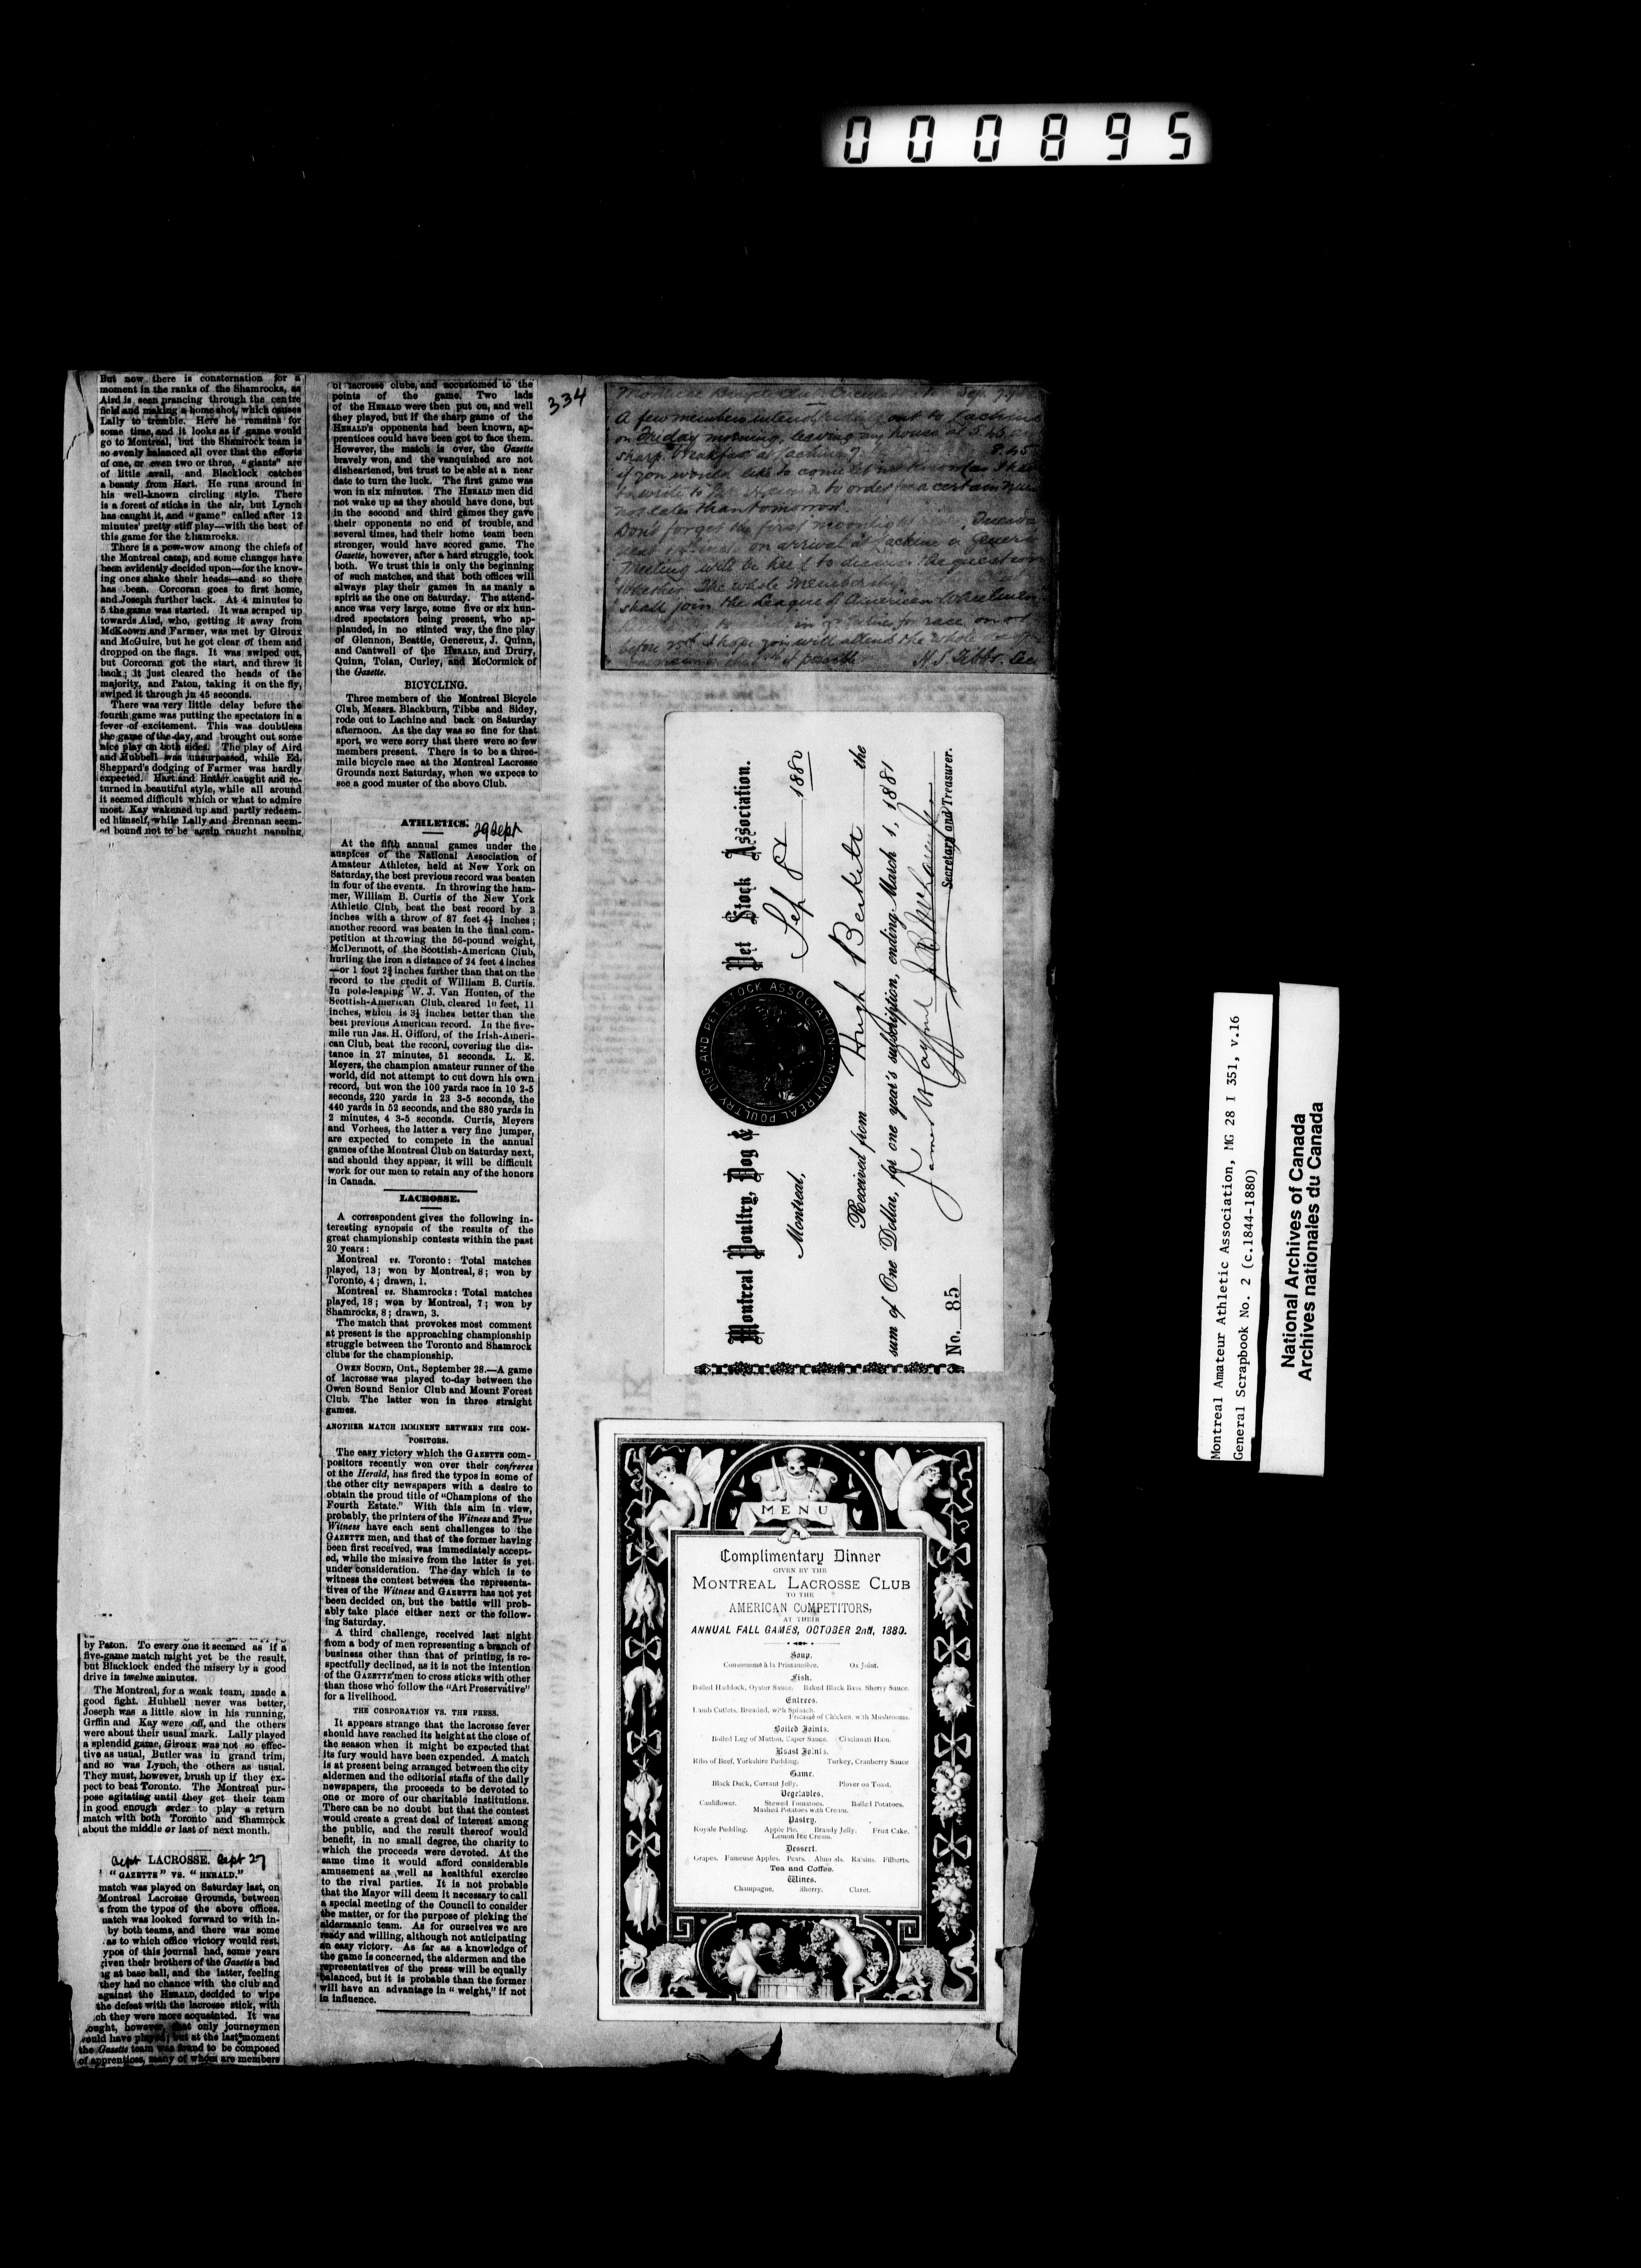 000895
But now there is consternation for a
moment in the ranks of the Shamrocks, as
Aird is seen prancing through the centre
field and making a home shot, which causes
Lally to tremble. Here he remains for
some time, and it looks as if game would
go to Montreal, but the Shamrock team is
so evenly balanced all over that the efforts
of one, or even two or three, "giants" are
of little avail, and Blacklock catches
a beauty from Hart. He runs around in
his well-known circling style. There
is a forest of sticks in the air, but Lynch
has caught it, and "game" called after 12
minutes' pretty stiff play—with the best of
this game for the Shamrocks.
There is a pow-wow among the chiefs of
the Montreal camp, and some changes have
been evidently decided upon—for the know-
ing ones shake their heads—and so there
has been. Corcoran goes to first home,
and Joseph further back. At 4 minutes to
5 the game was started. It was scraped up
towards Aird, who, getting it away from
McKeown and Farmer, was met by Giroux
and McGuire, but he got clear of them and
dropped on the flags. It was swiped out,
but Corcoran got the start, and threw it
back; it just cleared the heads of the
majority, and Paton, taking it on the fly,
swiped it through in 45 seconds.
There was very little delay before the
fourth game was putting the spectators in a
fever of excitement. This was doubtless
the game of the day, and brought out some
nice play on both sides. The play of Aird
and Hubbell was unsurpassed, while Ed.
Sheppard's dodging of Farmer was hardly
expected. Hart and Butler caught and re-
turned in beautiful style, while all around
it seemed difficult which or what to admire
most. Kay wakened up and partly redeem-
ed himself, while Lally and Brennan seem-
ed bound not to be again caught napping,
by Paton. To every one it seemed as if a
five-game match might yet be the result,
but Blacklock ended the misery by a good
drive in twelve minutes.
The Montreal, for a weak team, made a
good fight. Hubbell never was better,
Joseph was a little slow in his running,
Griffin and Kay were off, and the others
were about their usual mark. Lally played
a splendid game, Giroux was not so effec-
tive as usual, Butler was in grand trim,
and so was Lynch, the others as usual.
They must, however, brush up if they ex-
pect to beat Toronto. The Montreal pur-
pose agitating until they get their team
in good enough order to play a return
match with both Toronto and Shamrock
about the middle or last of next month.
Sept LACROSSE. Sept 27
"GAZETTE" VS. "HERALD."
match was played on Saturday last, on
Montreal Lacrosse Grounds, between
s from the typos of the above offices.
match was looked forward to with in-
by both teams, and there was some
as to which office victory would rest.
ypos of this journal had, some years
given their brothers of the Gazette a bad
ng at base ball, and the latter, feeling
they had no chance with the club and
against the HERALD, decided to wipe
the defeat with the lacrosse stick, with
ch they were more acquainted. It was
ought, however, that only journeymen
would have played; but at the last moment
the Gazette team was found to be composed
of apprentices, many of whom are members
of lacrosse clubs, and accustomed to the
points of the game. Two lads
of the HERALD were then put on, and well
they played, but if the sharp game of the
HERALD'S opponents had been known, ap-
prentices could have been got to face them.
However, the match is over, the Gazette
bravely won, and the vanquished are not
disheartened, but trust to be able at a near
date to turn the luck. The first game was
won in six minutes. The HERALD men did
not wake up as they should have done, but
in the second and third games they gave
their opponents no end of trouble, and
several times, had their home team been
stronger, would have scored game. The
Gazette, however, after a hard struggle, took
both. We trust this is only the beginning
of such matches, and that both offices will
always play their games in as manly a
spirit as the one on Saturday. The attend-
ance was very large, some five or six hun-
dred spectators being present, who ap-
plauded, in no stinted way, the fine play
of Glennon, Beattie, Genereux, J. Quinn,
and Cantwell of the HERALD, and Drury,
Quinn, Tolan, Curley, and McCormick of
the Gazette.
BICYCLING.
Three members of the Montreal Bicycle
Club, Messrs. Blackburn, Tibbs and Sidey,
rode out to Lachine and back on Saturday
afternoon. As the day was so fine for that
sport, we were sorry that there were so few
members present. There is to be a three-
mile bicycle race at the Montreal Lacrosse
Grounds next Saturday, when we expect to
see a good muster of the above Club.
ATHLETICS.
29 Sept
At the fifth annual games under the
auspices of the National Association of
Amateur Athletes, held at New York on
Saturday, the best previous record was beaten
in four of the events. In throwing the ham-
mer, William B. Curtis of the New York
Athletic Club, beat the best record by 3
inches with a throw of 87 feet 4½ inches;
another record was beaten in the final com-
petition at throwing the 56-pound weight,
McDermott, of the Scottish-American Club,
hurling the iron a distance of 24 feet 4 inches
—or 1 foot 2½ inches further than that on the
record to the credit of William B. Curtis.
In pole-leaping W. J. Van Houten, of the
Scottish-American Club, cleared 10 feet, 11
inches, which is 3½ inches better than the
best previous American record. In the five-
mile run Jas. H. Gifford, of the Irish-Ameri-
can Club, beat the record, covering the dis-
tance in 27 minutes, 51 seconds. L. E.
Meyers, the champion amateur runner of the
world, did not attempt to cut down his own
record, but won the 100 yards race in 10 2-5
seconds, 220 yards in 23 3-5 seconds, the
440 yards in 52 seconds, and the 880 yards in
2 minutes, 4 3-5 seconds. Curtis, Meyers
and Vorhees, the latter a very fine jumper,
are expected to compete in the annual
games of the Montreal Club on Saturday next,
and should they appear, it will be difficult
work for our men to retain any of the honors
in Canada.
LACROSSE.
A correspondent gives the following in-
teresting synopsis of the results of the
great championship contests within the past
20 years:
Montreal vs. Toronto: Total matches
played, 13; won by Montreal, 8; won by
Toronto, 4; drawn, 1.
Montreal vs. Shamrocks: Total matches
played, 18; won by Montreal, 7; won by
Shamrocks, 8; drawn, 3.
The match that provokes most comment
at present is the approaching championship
struggle between the Toronto and Shamrock
clubs for the championship.
OWEN SOUND, Ont., September 28.—A game
of lacrosse was played to-day between the
Owen Sound Senior Club and Mount Forest
Club. The latter won in three straight
games.
ANOTHER MATCH IMMINENT BETWEEN THE COM-
POSITORS.
The easy victory which the GAZETTE com-
positors recently won over their confreres
of the Herald, has fired the typos in some of
the other city newspapers with a desire to
obtain the proud title of "Champions of the
Fourth Estate." With this aim in view,
probably, the printers of the Witness and True
Witness have each sent challenges to the
GAZETTE men, and that of the former having
been first received, was immediately accept-
ed, while the missive from the latter is yet
under consideration. The day which is to
witness the contest between the representa-
tives of the Witness and GAZETTE has not yet
been decided on, but the battle will prob-
ably take place either next or the follow-
ing Saturday.
A third challenge, received last night
from a body of men representing a branch of
business other than that of printing, is re-
spectfully declined, as it is not the intention
of the GAZETTE men to cross sticks with other
than those who follow the "Art Preservative"
for a livelihood.
THE CORPORATION VS. THE PRESS.
It appears strange that the lacrosse fever
should have reached its height at the close of
the season when it might be expected that
its fury would have been expended. A match
is at present being arranged between the city
aldermen and the editorial staffs of the daily
newspapers, the proceeds to be devoted to
one or more of our charitable institutions.
There can be no doubt but that the contest
would create a great deal of interest among
the public, and the result thereof would
benefit, in no small degree, the charity to
which the proceeds were devoted. At the
same time it would afford considerable
amusement as well as healthful exercise
to the rival parties. It is not probable
that the Mayor will deem it necessary to call
a special meeting of the Council to consider
the matter, or for the purpose of picking the
aldermanic team. As for ourselves we are
ready and willing, although not anticipating
an easy victory. As far as a knowledge of
the game is concerned, the aldermen and the
representatives of the press will be equally
balanced, but it is probable than the former
will have an advantage in "weight," if not
in influence.
334
A few members intend riding out to Lachine
on Friday morning, leaving my house at 5.45
sharp. Breakfast at Lachine 8.45
if you would like to come let me know as I have
to write to to order for a certain num
not later than tomorrow.
Don't forget the first moonlight
on arrival at Lachine a general
Meeting will be held to discuss the question
whether the whole Membership
shall join the League of American Wheelmen
in for race on or
before I hope you will attend the
Montreal Poultry, Dog & Pet Stock Association.
MONTREAL POULTRY DOG AND PET STOCK ASSOCIATION
Montreal, Sep 8 1880
Received from Hugh Beckett the
sum of One Dollar, for one year's subscription, ending March 1, 1881
No. 85
Secretary and Treasurer.
MENU
Complimentary Dinner
GIVEN BY THE
MONTREAL LACROSSE CLUB
TO THE
AMERICAN COMPETITORS,
AT THEIR
ANNUAL FALL GAMES, OCTOBER 2nd, 1880.
Soup.
Consommé à la Printannière. Ox Joint.
Fish.
Boiled Haddock, Oyster Sauce. Baked Black Bass, Sherry Sauce.
Entrees.
Lamb Cutlets, Breaded, with Spinach.
Fricassé of Chicken, with Mushrooms.
Boiled Joints.
Boiled Leg of Mutton, Caper Sauce. Cincinnati Ham.
Roast Joints.
Ribs of Beef, Yorkshire Pudding. Turkey, Cranberry Sauce
Game.
Black Duck, Currant Jelly. Plover on Toast.
Vegetables.
Cauliflower. Stewed Tomatoes. Boiled Potatoes.
Mashed Potatoes with Cream.
Pastry.
Royale Pudding. Apple Pie. Brandy Jelly. Fruit Cake.
Lemon Ice Cream.
Dessert.
Grapes. Fameuse Apples. Pears. Almonds. Raisins. Filberts.
Tea and Coffee.
Wines.
Champagne. Sherry. Claret.
Montreal Amateur Athletic Association, MG 28 I 351, v.16
General Scrapbook No. 2 (c.1844-1880)
National Archives of Canada
Archives nationales du Canada